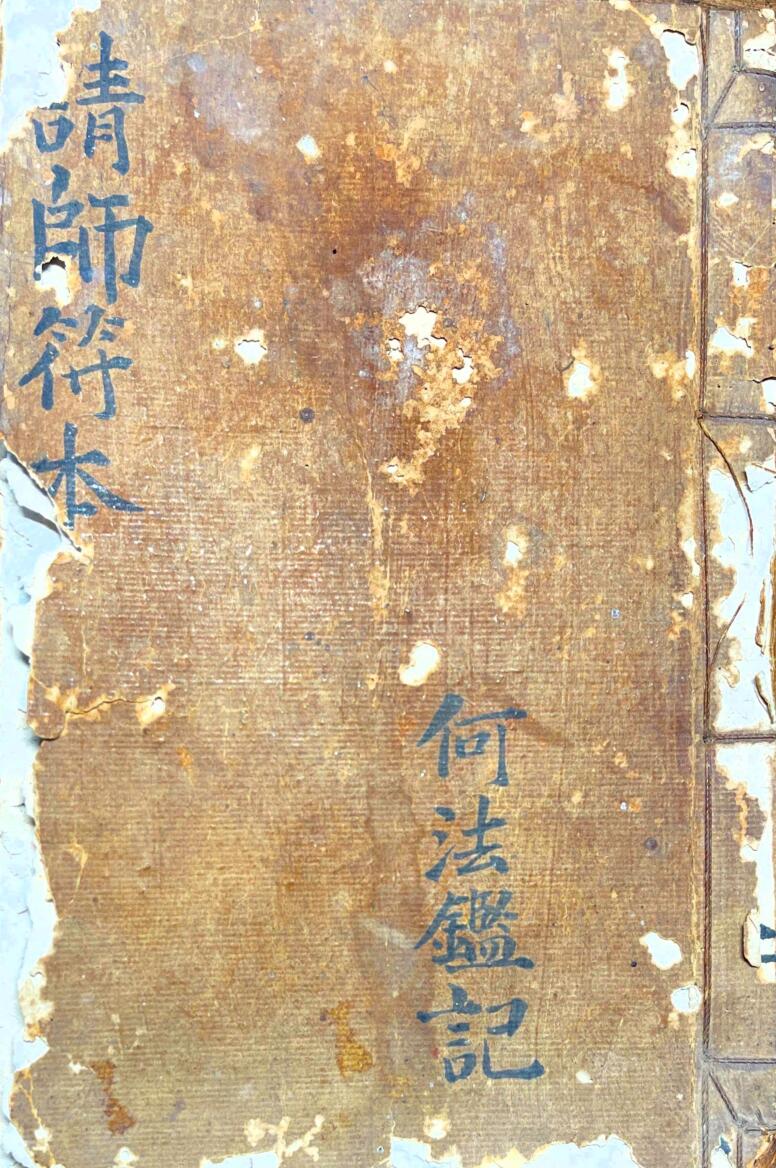 請師符本
何法鑑記